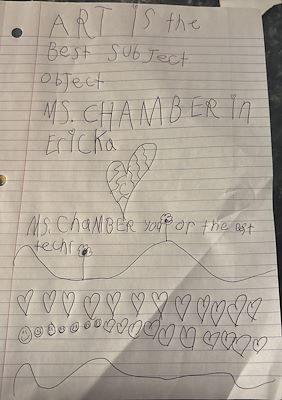 ART is the
Best SubJect
object
MS. CHAMBER in
Ericka
MS. ChaMBER your or the ast
techr